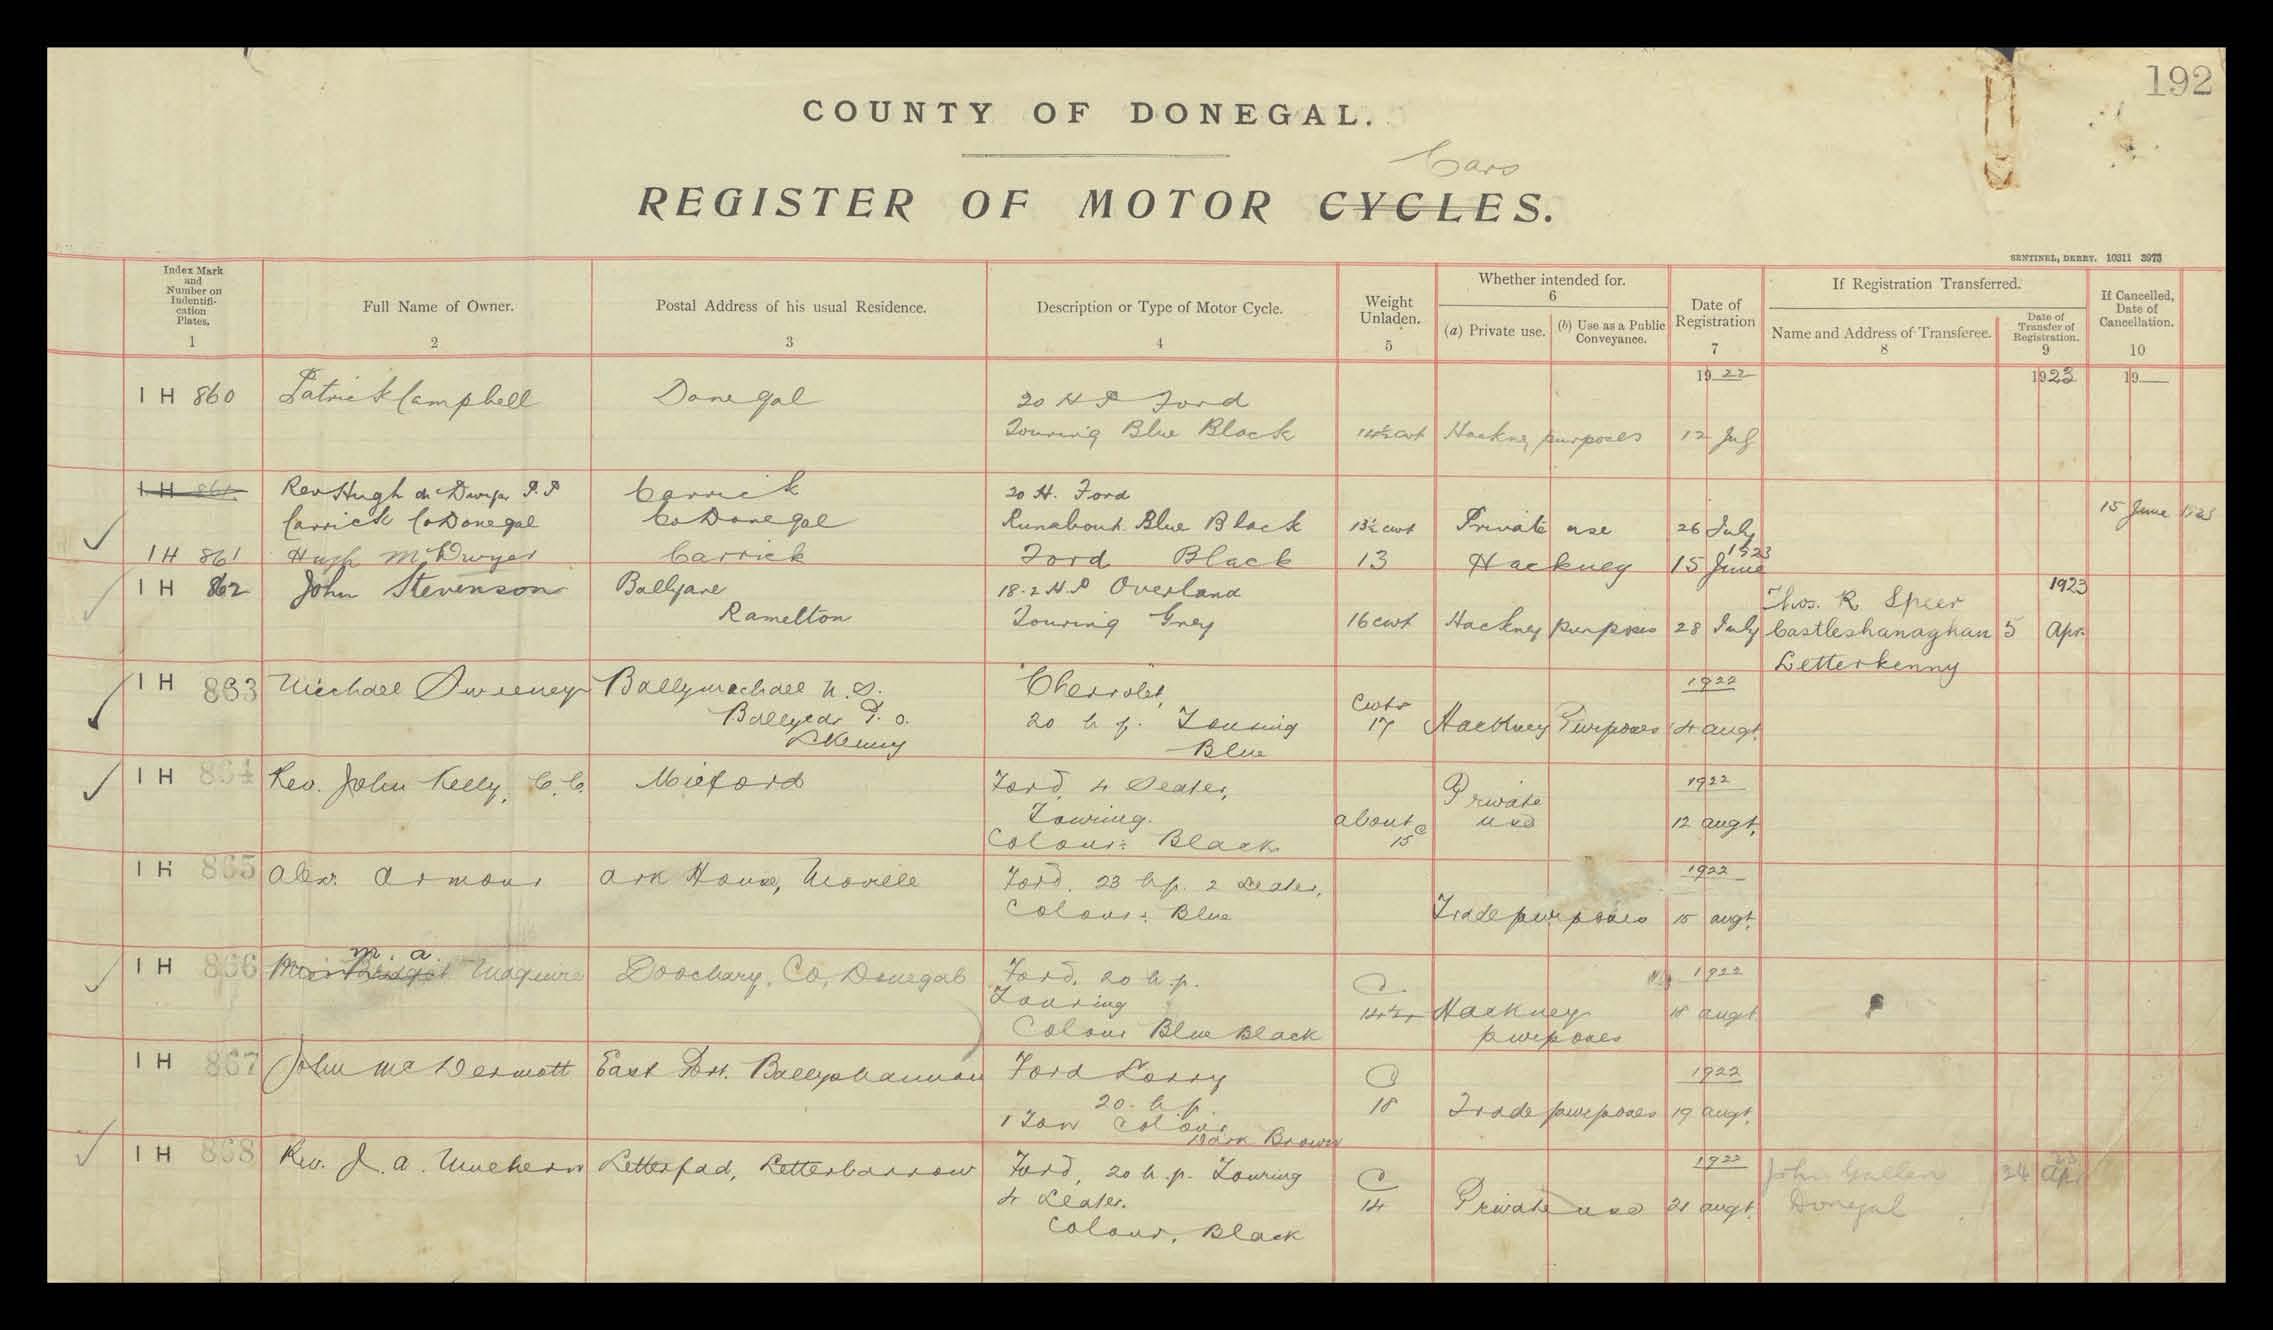 192
COUNTY OF DONEGAL.
Cars
REGISTER OF MOTOR CYCLES.
SENTINEL, DERRY. 10311 3973
Index Mark and Number on Indentifi- cation Plates. 1
Full Name of Owner. 2
Postal Address of his usual Residence. 3
Description or Type of Motor Cycle. 4
Weight Unladen. 5
Whether intended for. 6
(a) Private use.
(b) Use as a Public Conveyance.
Date of Registration 7
If Registration Transferred.
Name and Address of Transferee. 8
Date of Transfer of Registration. 9
If Cancelled, Date of Cancellation. 10
1922 1923 19
IH 860 Patrick Campbell Donegal 20 H P Ford
Touring Blue Black 14½ cwt Hackney purposes 12 July
IH 861 Rev Hugh McDwyer P.P Carrick 20 H. Ford
Carrick Co Donegal Co Donegal Runabout Blue Black 13½ cwt Private use 26 July 15 June 1923
IH 861 Hugh McDwyer Carrick Ford Black 13 Hackney 15 June 1923
IH 862 John Stevenson Ballyare 18.2 H.P Overland Thos. R Speer 1923
Ramelton Touring Grey 16 cwt Hackney purposes 28 July Castleshanaghan 5 Apr.
Letterkenny
IH 863 Michael Sweeney Ballymachael N.S. "Chevrolet" 1922
Ballyear P.O. 20 h.p. Touring Cwts 17 Hackney Purposes 4 augt.
LKenny Blue
IH 864 Rev. John Kelly, C.C. Milford Ford, 4 Seater, Private 1922
Touring. about 15 c use 12 augt.
Colour: Black
IH 865 Alex. Armour Ark House, Moville Ford, 23 h.p. 2 Seater, 1922
Colour: Blue Trade purposes 15 augt.
m. a.
IH 866 Miss Bridget Maguire Doochary, Co, Donegal Ford, 20 h.p. C. 1922
Touring 14½ Hackney 18 augt
Colour Blue Black purposes
IH 867 John McDermott East Port. Ballyshannon Ford Lorry C 1922
20. h.p. 18 Trade purposes 19 augt.
1 Ton Colour
Dark Brown
IH 868 Rev. J. A. Mulhern Letterfad, Letterbarrow Ford, 20 h.p. Touring C 1922 John Gallen 24 Apr 23
4 Seater. 14 Private use 21 augt. Donegal
Colour, Black